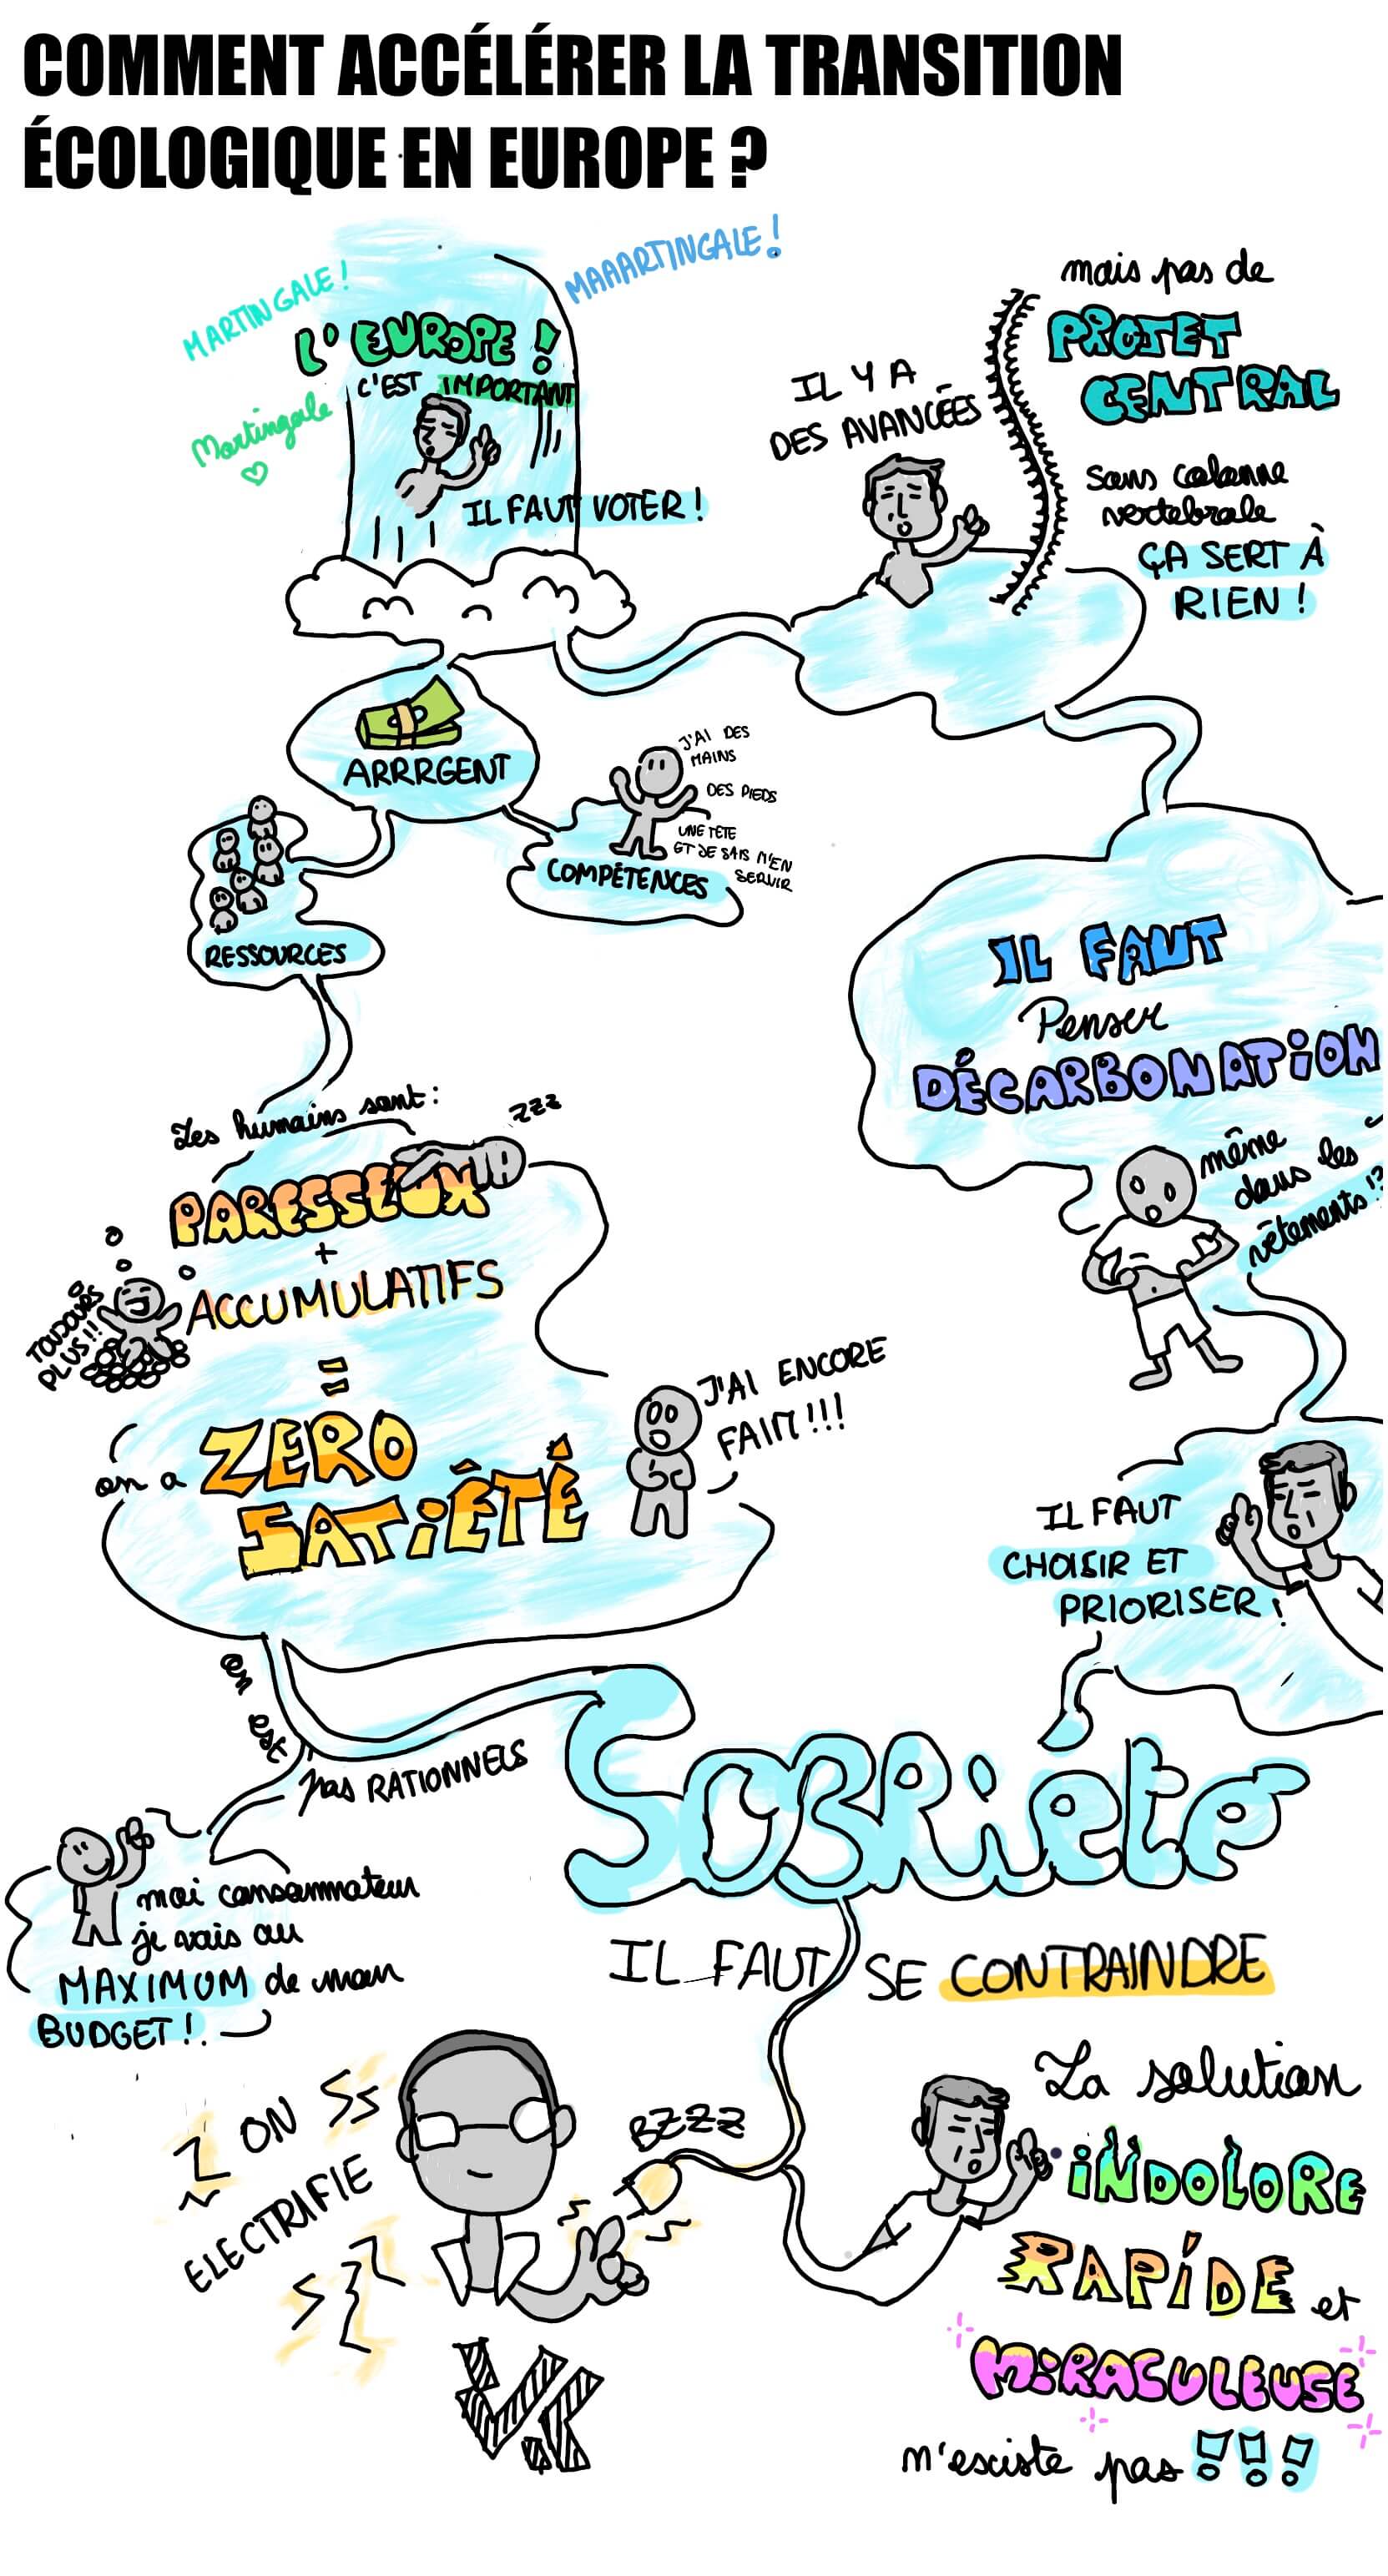 COMMENT ACCÉLÉRER LA TRANSITION
ÉCOLOGIQUE EN EUROPE ?
MARTINGALE !
MAAARTINGALE !
L'EUROPE !
C'EST IMPORTANT
Martingale
IL FAUT VOTER !
IL Y A
DES AVANCÉES
mais pas de
PROJET
CENTRAL
sans colonne
vertebrale
ÇA SERT À
RIEN !
ARRRGENT
J'AI DES
MAINS
DES PIEDS
UNE TÊTE
ET JE SAIS M'EN
SERVIR
COMPÉTENCES
RESSOURCES
IL FAUT
Penser
DÉCARBONATION
même
dans les
vêtements !?
Les humains sont :
ZZZ
PARESSEUX
+
ACCUMULATIFS
TOUJOURS
PLUS !!
=
on a ZERO
SATIÉTÉ
J'AI ENCORE
FAIM !!!
IL FAUT
CHOISIR ET
PRIORISER !
on est
pas RATIONNELS
moi consommateur
je vais au
MAXIMUM de mon
BUDGET !
SOBRiété
IL FAUT SE CONTRAINDRE
ON
ELECTRIFIE
BZZZ
VK
La solution
iNDOLORE
RAPIDE et
MiRACULEUSE
n'existe pas !!!